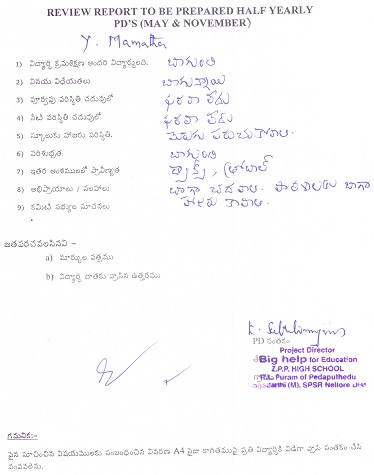 REVIEW REPORT TO BE PREPARED HALF YEARLY
PD'S (MAY & NOVEMBER)
Y. Mamatha
1) విద్యార్థి క్రమశిక్షణ అందరి విద్యార్థులది. బాగుంది
2) వినయ విధేయతలు బాగున్నాయి
3) పూర్వపు పరిస్థితి చదువులో ఫరవా లేదు
4) నేటి పరిస్థితి చదువులో ఫరవా లేదు
5) స్కూలుకు హాజరు పరిస్థితి. మెరుగు పరుచుకోవాలి.
6) పరిశుభ్రత బాగుంది
7) ఇతర అంశములలో ప్రావీణ్యత డ్రాన్స్,
8) అభిప్రాయాలు / సలహాలు బాగా చదవాలి. పాఠశాలకు బాగా
9) కమిటి సభ్యుల సూచనలు హాజరు కావాలి.
జతపరచవలసినవి :-
a) మార్కుల పత్రము
b) విద్యార్థి దాతకు వ్రాసిన ఉత్తరము
PD సంతకం
Project Director
Big help for Education
Z.P.P. HIGH SCHOOL
Puram of Pedaputhedu
(M), SPSR Nellore Dist
గమనిక:-
పైన సూచించిన విషయములకు సంబంధించిన వివరణ A4 సైజు కాగితముపై ప్రతి విద్యార్థికి విడిగా వ్రాసి సంతకం చేసి
పంపవలెను.